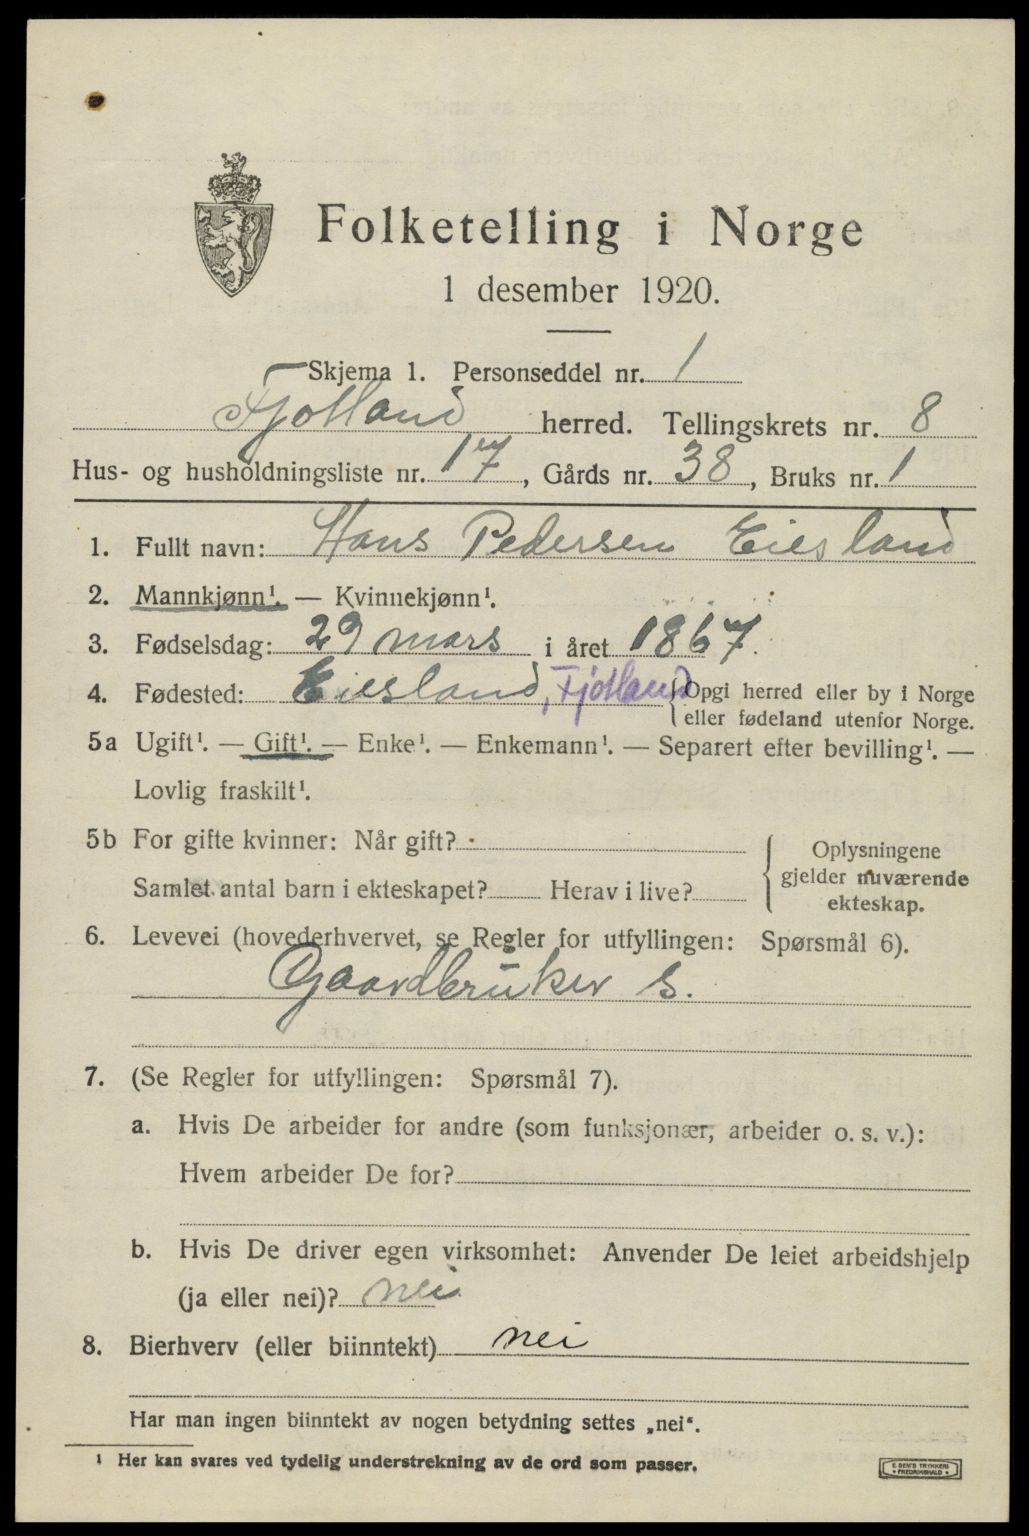 Folketelling i Norge
1 desember 1920.
Skjema 1. Personseddel nr. 1
Fjotland herred. Tellingskrets nr. 8
Hus- og husholdningsliste nr. 17, Gårds nr. 38, Bruks nr. 1
1. Fullt navn: Hans Pedersen Eiesland
2. Mannkjønn¹. — Kvinnekjønn¹.
3. Fødselsdag: 29 mars i året 1867.
4. Fødested: Eiesland, Fjotland { Opgi herred eller by i Norge
eller fødeland utenfor Norge.
5a Ugift¹. — Gift¹. — Enke¹. — Enkemann¹. — Separert efter bevilling¹. —
Lovlig fraskilt¹.
5b For gifte kvinner: Når gift?
Samlet antal barn i ekteskapet? Herav i live?
{ Oplysningene
gjelder nuværende
ekteskap.
6. Levevei (hovederhvervet, se Regler for utfyllingen: Spørsmål 6).
Gaardbruker S.
7. (Se Regler for utfyllingen: Spørsmål 7).
a. Hvis De arbeider for andre (som funksjonær, arbeider o. s. v.):
Hvem arbeider De for?
b. Hvis De driver egen virksomhet: Anvender De leiet arbeidshjelp
(ja eller nei)? nei
8. Bierhverv (eller biinntekt) nei
Har man ingen biinntekt av nogen betydning settes „nei“.
¹ Her kan svares ved tydelig understrekning av de ord som passer.
E. SEM'S TRYKKERI
• FREDRIKSHALD •